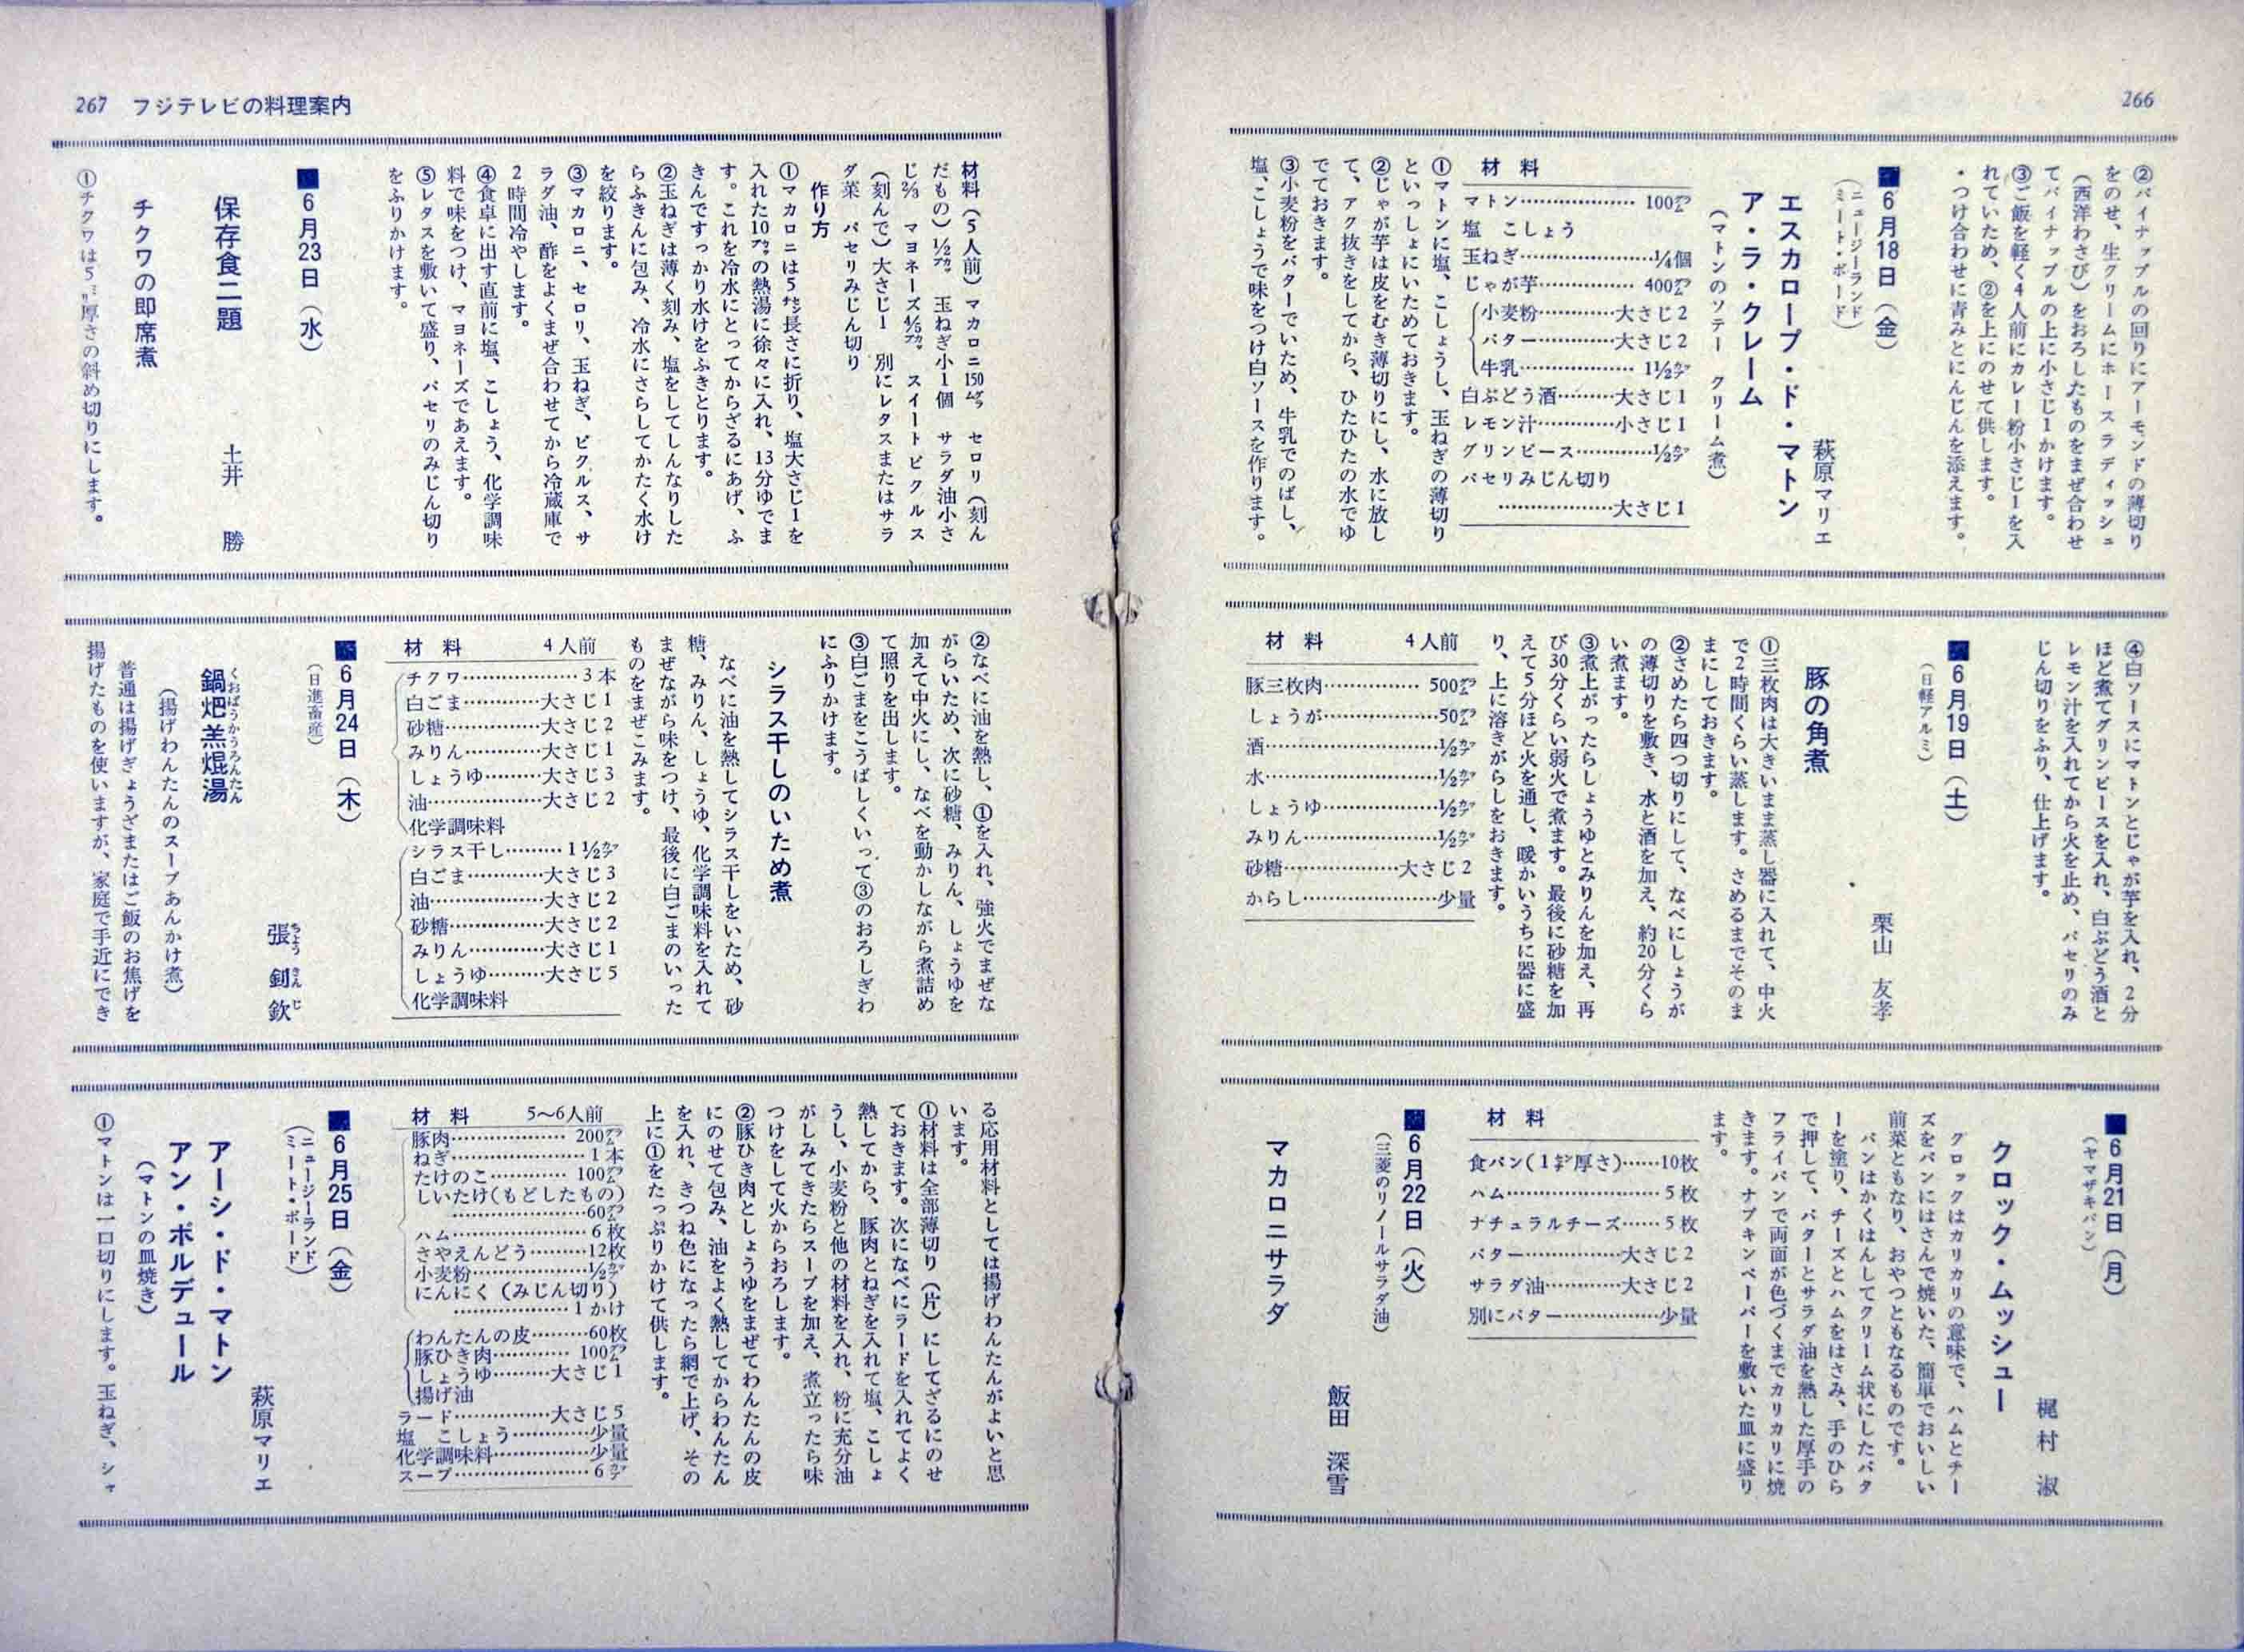 266
②パイナップルの回りにアーモンドの薄切り
をのせ、生クリームにホースラディッシュ
（西洋わさび）をおろしたものをまぜ合わせ
てパイナップルの上に小さじ1かけます。
③ご飯を軽く4人前にカレー粉小さじ1を入
れていため、②を上にのせて供します。
・つけ合わせに青みとにんじんを添えます。
■6月18日（金）
（ニュージーランド
ミート・ボード）
萩原マリエ
エスカロープ・ド・マトン
ア・ラ・クレーム
（マトンのソテー　クリーム煮）
材　料
マトン………………100㌘
塩　こしょう
玉ねぎ…………………¼個
じゃが芋……………400㌘
小麦粉…………大さじ2
バター…………大さじ2
牛乳………………1½㌍
白ぶどう酒………大さじ1
レモン汁…………小さじ1
グリンピース…………½㌍
パセリみじん切り
………………大さじ1
①マトンに塩、こしょうし、玉ねぎの薄切り
といっしょにいためておきます。
②じゃが芋は皮をむき薄切りにし、水に放し
て、アク抜きをしてから、ひたひたの水でゆ
でておきます。
③小麦粉をバターでいため、牛乳でのばし、
塩、こしょうで味をつけ白ソースを作ります。
④白ソースにマトンとじゃが芋を入れ、2分
ほど煮てグリンピースを入れ、白ぶどう酒と
レモン汁を入れてから火を止め、パセリのみ
じん切りをふり、仕上げます。
■6月19日（土）
（日軽アルミ）
栗山　友孝
豚の角煮
①三枚肉は大きいまま蒸し器に入れて、中火
で2時間くらい蒸します。さめるまでそのま
まにしておきます。
②さめたら四つ切りにして、なべにしょうが
の薄切りを敷き、水と酒を加え、約20分くら
い煮ます。
③煮上がったらしょうゆとみりんを加え、再
び30分くらい弱火で煮ます。最後に砂糖を加
えて5分ほど火を通し、暖かいうちに器に盛
り、上に溶きがらしをおきます。
材　料　　4人前
豚三枚肉……………500㌘
しょうが………………50㌘
酒………………………½㌍
水………………………½㌍
しょうゆ………………½㌍
みりん…………………½㌍
砂糖………………大さじ2
からし…………………少量
■6月21日（月）
（ヤマザキパン）
梶村　淑
クロック・ムッシュー
クロックはカリカリの意味で、ハムとチー
ズをパンにはさんで焼いた、簡単でおいしい
前菜ともなり、おやつともなるものです。
パンはかくはんしてクリーム状にしたバタ
ーを塗り、チーズとハムをはさみ、手のひら
で押して、バターとサラダ油を熱した厚手の
フライパンで両面が色づくまでカリカリに焼
きます。ナプキンペーパーを敷いた皿に盛り
ます。
材　料
食パン（1㌢厚さ）……10枚
ハム……………………5枚
ナチュラルチーズ……5枚
バター……………大さじ2
サラダ油…………大さじ2
別にバター……………少量
■6月22日（火）
（三菱のリノールサラダ油）
飯田　深雪
マカロニサラダ
267　フジテレビの料理案内
材料（5人前）マカロニ150㌘　セロリ（刻ん
だもの）½㌍　玉ねぎ小1個　サラダ油小さ
じ⅔　マヨネーズ⅘㌍　スイートピクルス
（刻んで）大さじ1　別にレタスまたはサラ
ダ菜　パセリみじん切り
作り方
①マカロニは5㌢長さに折り、塩大さじ1を
入れた10㌍の熱湯に徐々に入れ、13分ゆでま
す。これを冷水にとってからざるにあげ、ふ
きんですっかり水けをふきとります。
②玉ねぎは薄く刻み、塩をしてしんなりした
らふきんに包み、冷水にさらしてかたく水け
を絞ります。
③マカロニ、セロリ、玉ねぎ、ピクルス、サ
ラダ油、酢をよくまぜ合わせてから冷蔵庫で
2時間冷やします。
④食卓に出す直前に塩、こしょう、化学調味
料で味をつけ、マヨネーズであえます。
⑤レタスを敷いて盛り、パセリのみじん切り
をふりかけます。
■6月23日（水）
保存食二題
土井　勝
チクワの即席煮
①チクワは5㍉厚さの斜め切りにします。
②なべに油を熱し、①を入れ、強火でまぜな
がらいため、次に砂糖、みりん、しょうゆを
加えて中火にし、なべを動かしながら煮詰め
て照りを出します。
③白ごまをこうばしくいって③のおろしぎわ
にふりかけます。
シラス干しのいため煮
なべに油を熱してシラス干しをいため、砂
糖、みりん、しょうゆ、化学調味料を入れて
まぜながら味をつけ、最後に白ごまのいった
ものをまぜこみます。
材　料　　4人前
チクワ………………3本
白ごま…………大さじ1
砂糖……………大さじ2
みりん…………大さじ1
しょうゆ………大さじ3
油………………大さじ2
化学調味料
シラス干し………1½㌍
白ごま…………大さじ3
油………………大さじ2
砂糖……………大さじ2
みりん…………大さじ1
しょうゆ………大さじ5
化学調味料
■6月24日（木）
（日進畜産）
鍋𤆵羔焜湯
くおぱうかうろんたん
（揚げわんたんのスープあんかけ煮）
普通は揚げぎょうざまたはご飯のお焦げを
揚げたものを使いますが、家庭で手近にでき
る応用材料としては揚げわんたんがよいと思
います。
①材料は全部薄切り（片）にしてざるにのせ
ておきます。次になべにラードを入れてよく
熱してから、豚肉とねぎを入れて塩、こしょ
うし、小麦粉と他の材料を入れ、粉に充分油
がしみてきたらスープを加え、煮立ったら味
つけをして火からおろします。
②豚ひき肉としょうゆをまぜてわんたんの皮
にのせて包み、油をよく熱してからわんたん
を入れ、きつね色になったら網で上げ、その
上に①をたっぷりかけて供します。
材　料　　5〜6人前
豚肉………………200㌘
ねぎ…………………1本
たけのこ…………100㌘
しいたけ（もどしたもの）
…………………60㌘
ハム…………………6枚
さやえんどう………12枚
小麦粉………………½㌍
にんにく（みじん切り）
………………1かけ
わんたんの皮………60枚
豚ひき肉…………100㌘
しょうゆ………大さじ1
揚げ油
ラード……………大さじ5
塩　こしょう…………少量
化学調味料……………少量
スープ…………………6㌍
■6月25日（金）
（ニュージーランド
ミート・ボード）
萩原マリエ
アーシ・ド・マトン
アン・ボルデュール
（マトンの皿焼き）
①マトンは一口切りにします。玉ねぎ、シャ